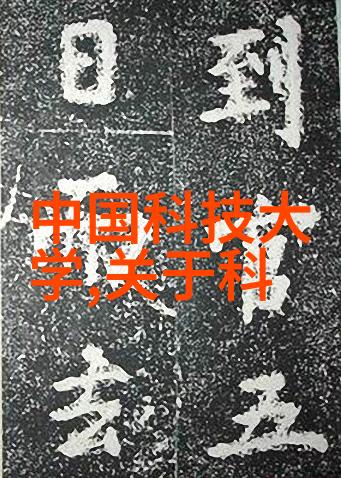 到官五
日去
中国科技大
学,关于科